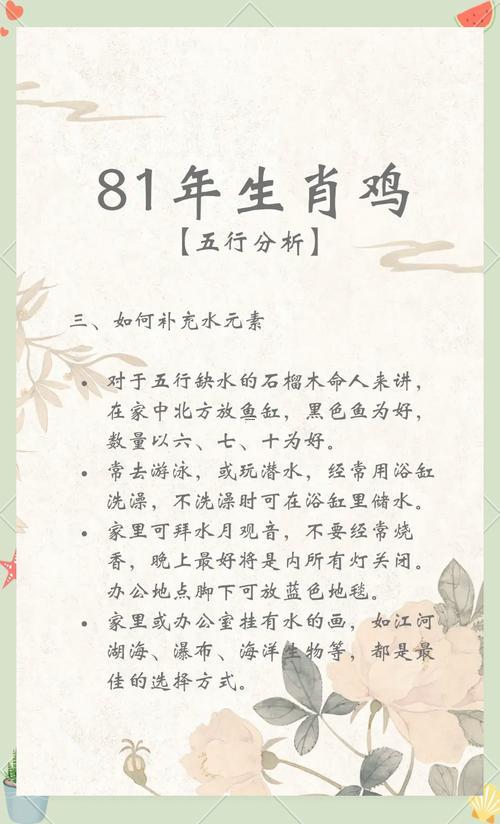 81年生肖鸡
【五行分析】
三、如何补充水元素
• 对于五行缺水的石榴木命人来讲，
在家中北方放鱼缸，黑色鱼为好，
数量以六、七、十为好。
• 常去游泳，或玩潜水，经常用浴缸
洗澡，不洗澡时可在浴缸里储水。
• 家里可拜水月观音，不要经常烧
香，晚上最好将是内所有灯关闭。
办公地点脚下可放蓝色地毯。
• 家里或办公室挂有水的画，如江河
湖海、瀑布、海洋生物等，都是最
佳的选择方式。